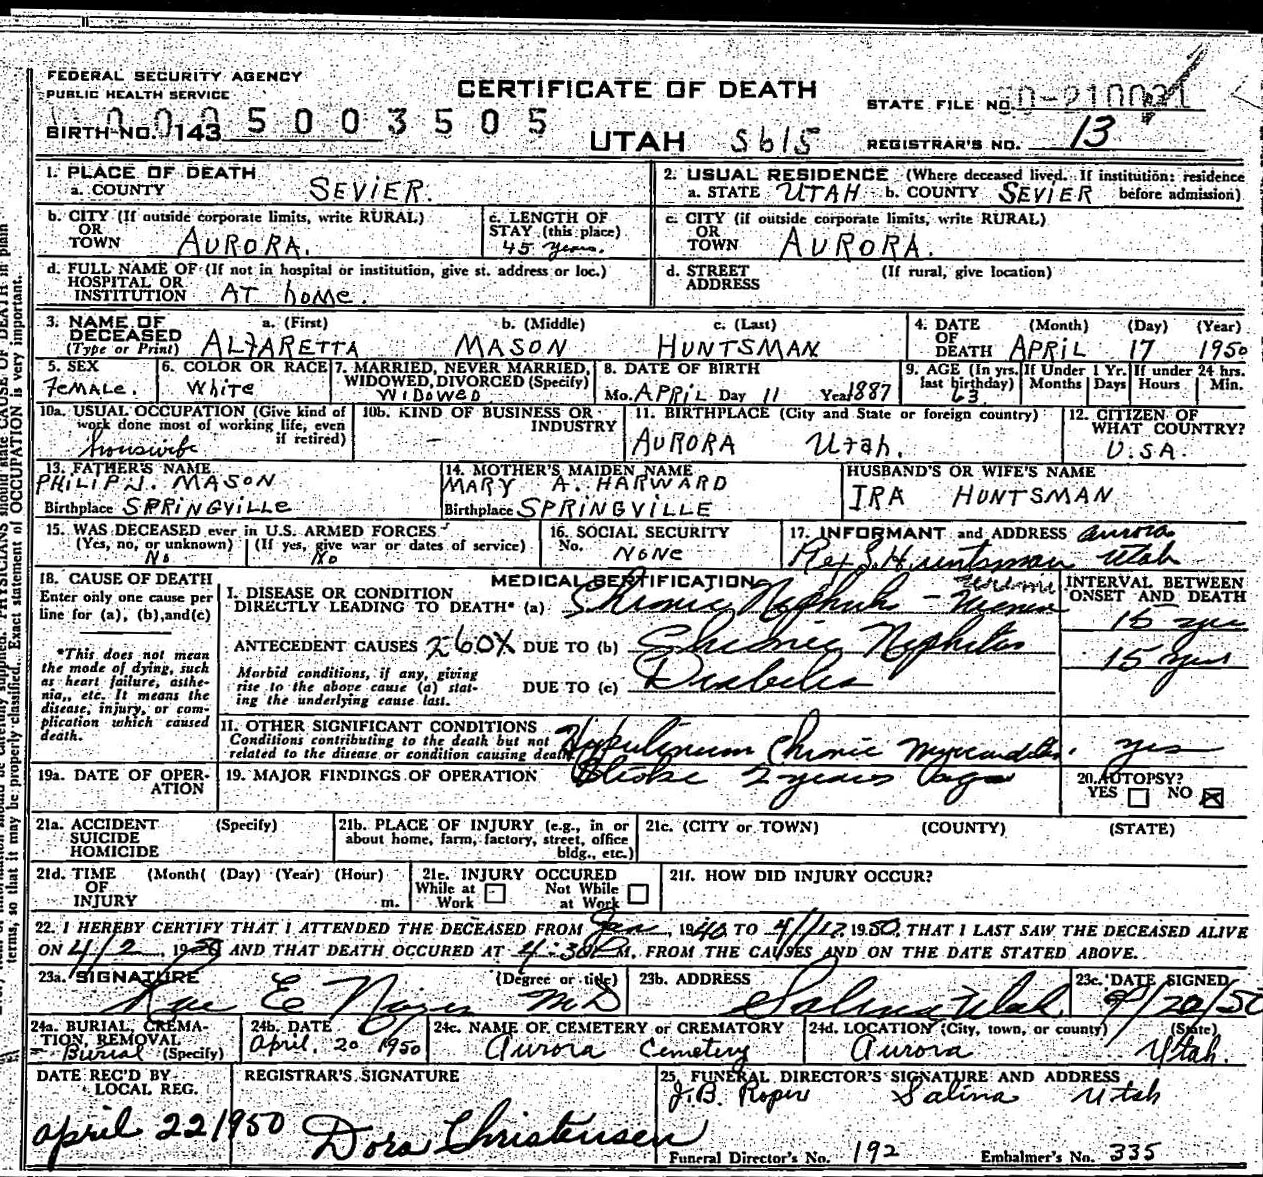 FEDERAL SECURITY AGENCY
PUBLIC HEALTH SERVICE
CERTIFICATE OF DEATH
STATE FILE NO.
BIRTH NO. 143
5 0 0 3 5 0 5
UTAH 5615
REGISTRAR'S NO. 13
1. PLACE OF DEATH
a. COUNTY SEVIER.
2. USUAL RESIDENCE (Where deceased lived. If institution: residence
a. STATE UTAH b. COUNTY SEVIER before admission)
b. CITY (If outside corporate limits, write RURAL)
OR
TOWN AURORA.
c. LENGTH OF
STAY (this place)
45 years.
c. CITY (if outside corporate limits, write RURAL)
OR
TOWN AURORA.
d. FULL NAME OF (If not in hospital or institution, give st. address or loc.)
HOSPITAL OR
INSTITUTION AT home.
d. STREET (If rural, give location)
ADDRESS
3. NAME OF a. (First) b. (Middle) c. (Last)
DECEASED
(Type or Print) ALTARETTA MASON HUNTSMAN
4. DATE (Month) (Day) (Year)
OF
DEATH APRIL 17 1950
5. SEX
Female.
6. COLOR OR RACE
White
7. MARRIED, NEVER MARRIED,
WIDOWED, DIVORCED (Specify)
WIDOWED
8. DATE OF BIRTH
Mo. APRIL Day 11 Year 1887
9. AGE (In yrs. last birthday) 63
If Under 1 Yr. Months Days
If under 24 hrs. Hours Min.
10a. USUAL OCCUPATION (Give kind of
work done most of working life, even
if retired)
housewife
10b. KIND OF BUSINESS OR
INDUSTRY
-
11. BIRTHPLACE (City and State or foreign country)
AURORA Utah.
12. CITIZEN OF
WHAT COUNTRY?
U.S.A.
13. FATHER'S NAME
PHILIP J. MASON
Birthplace SPRINGVILLE
14. MOTHER'S MAIDEN NAME
MARY A. HARWARD
Birthplace SPRINGVILLE
HUSBAND'S OR WIFE'S NAME
IRA HUNTSMAN
15. WAS DECEASED ever in U.S. ARMED FORCES
(Yes, no, or unknown) (If yes, give war or dates of service)
No No
16. SOCIAL SECURITY
No. NONE
17. INFORMANT and ADDRESS Aurora
Rex S. Huntsman Utah
18. CAUSE OF DEATH
Enter only one cause per
line for (a), (b), and (c)
*This does not mean
the mode of dying, such
as heart failure, asthe-
nia,, etc. It means the
disease, injury, or com-
plication which caused
death.
MEDICAL CERTIFICATION
I. DISEASE OR CONDITION
DIRECTLY LEADING TO DEATH* (a) Chronic Nephritis - Uremia
ANTECEDENT CAUSES 260X DUE TO (b) Chronic Nephritis
Morbid conditions, if any, giving
rise to the above cause (a) stat-
ing the underlying cause last.
DUE TO (c) Diabetes
INTERVAL BETWEEN
ONSET AND DEATH
15 yrs
15 yrs
II. OTHER SIGNIFICANT CONDITIONS
Conditions contributing to the death but not
related to the disease or condition causing death
Chronic
yes
19a. DATE OF OPER-
ATION
19. MAJOR FINDINGS OF OPERATION Stroke 2 years ago
20. AUTOPSY?
YES NO
21a. ACCIDENT (Specify)
SUICIDE
HOMICIDE
21b. PLACE OF INJURY (e.g., in or
about home, farm, factory, street, office
bldg., etc.)
21c. (CITY or TOWN) (COUNTY) (STATE)
21d. TIME (Month( (Day) (Year) (Hour)
OF
INJURY m.
21e. INJURY OCCURED
While at Work Not While at Work
21f. HOW DID INJURY OCCUR?
22. I HEREBY CERTIFY THAT I ATTENDED THE DECEASED FROM Jan, 1940 TO 4/17 1950, THAT I LAST SAW THE DECEASED ALIVE
ON 4/2, 1950 AND THAT DEATH OCCURED AT 4:30 P M, FROM THE CAUSES AND ON THE DATE STATED ABOVE.
23a. SIGNATURE (Degree or title)
Rae E Noyes M D
23b. ADDRESS
Salina Utah
23c. DATE SIGNED
20/50
24a. BURIAL, CREMA-
TION, REMOVAL
Burial (Specify)
24b. DATE
April. 20 1950
24c. NAME OF CEMETERY or CREMATORY
Aurora Cemetery
24d. LOCATION (City, town, or county) (State)
Aurora Utah.
DATE REC'D BY
LOCAL REG.
April 22 1950
REGISTRAR'S SIGNATURE
Dora Christensen
25. FUNERAL DIRECTOR'S SIGNATURE AND ADDRESS
J.B. Roper Salina Utah
Funeral Director's No. 192 Embalmer's No. 335